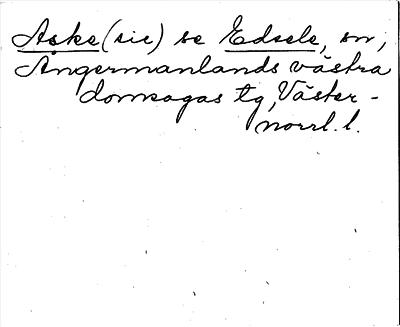 Aske (sic) se Edsele, sn,
Ångermanlands västra
domsagas tg, Väster-
norrl. l.